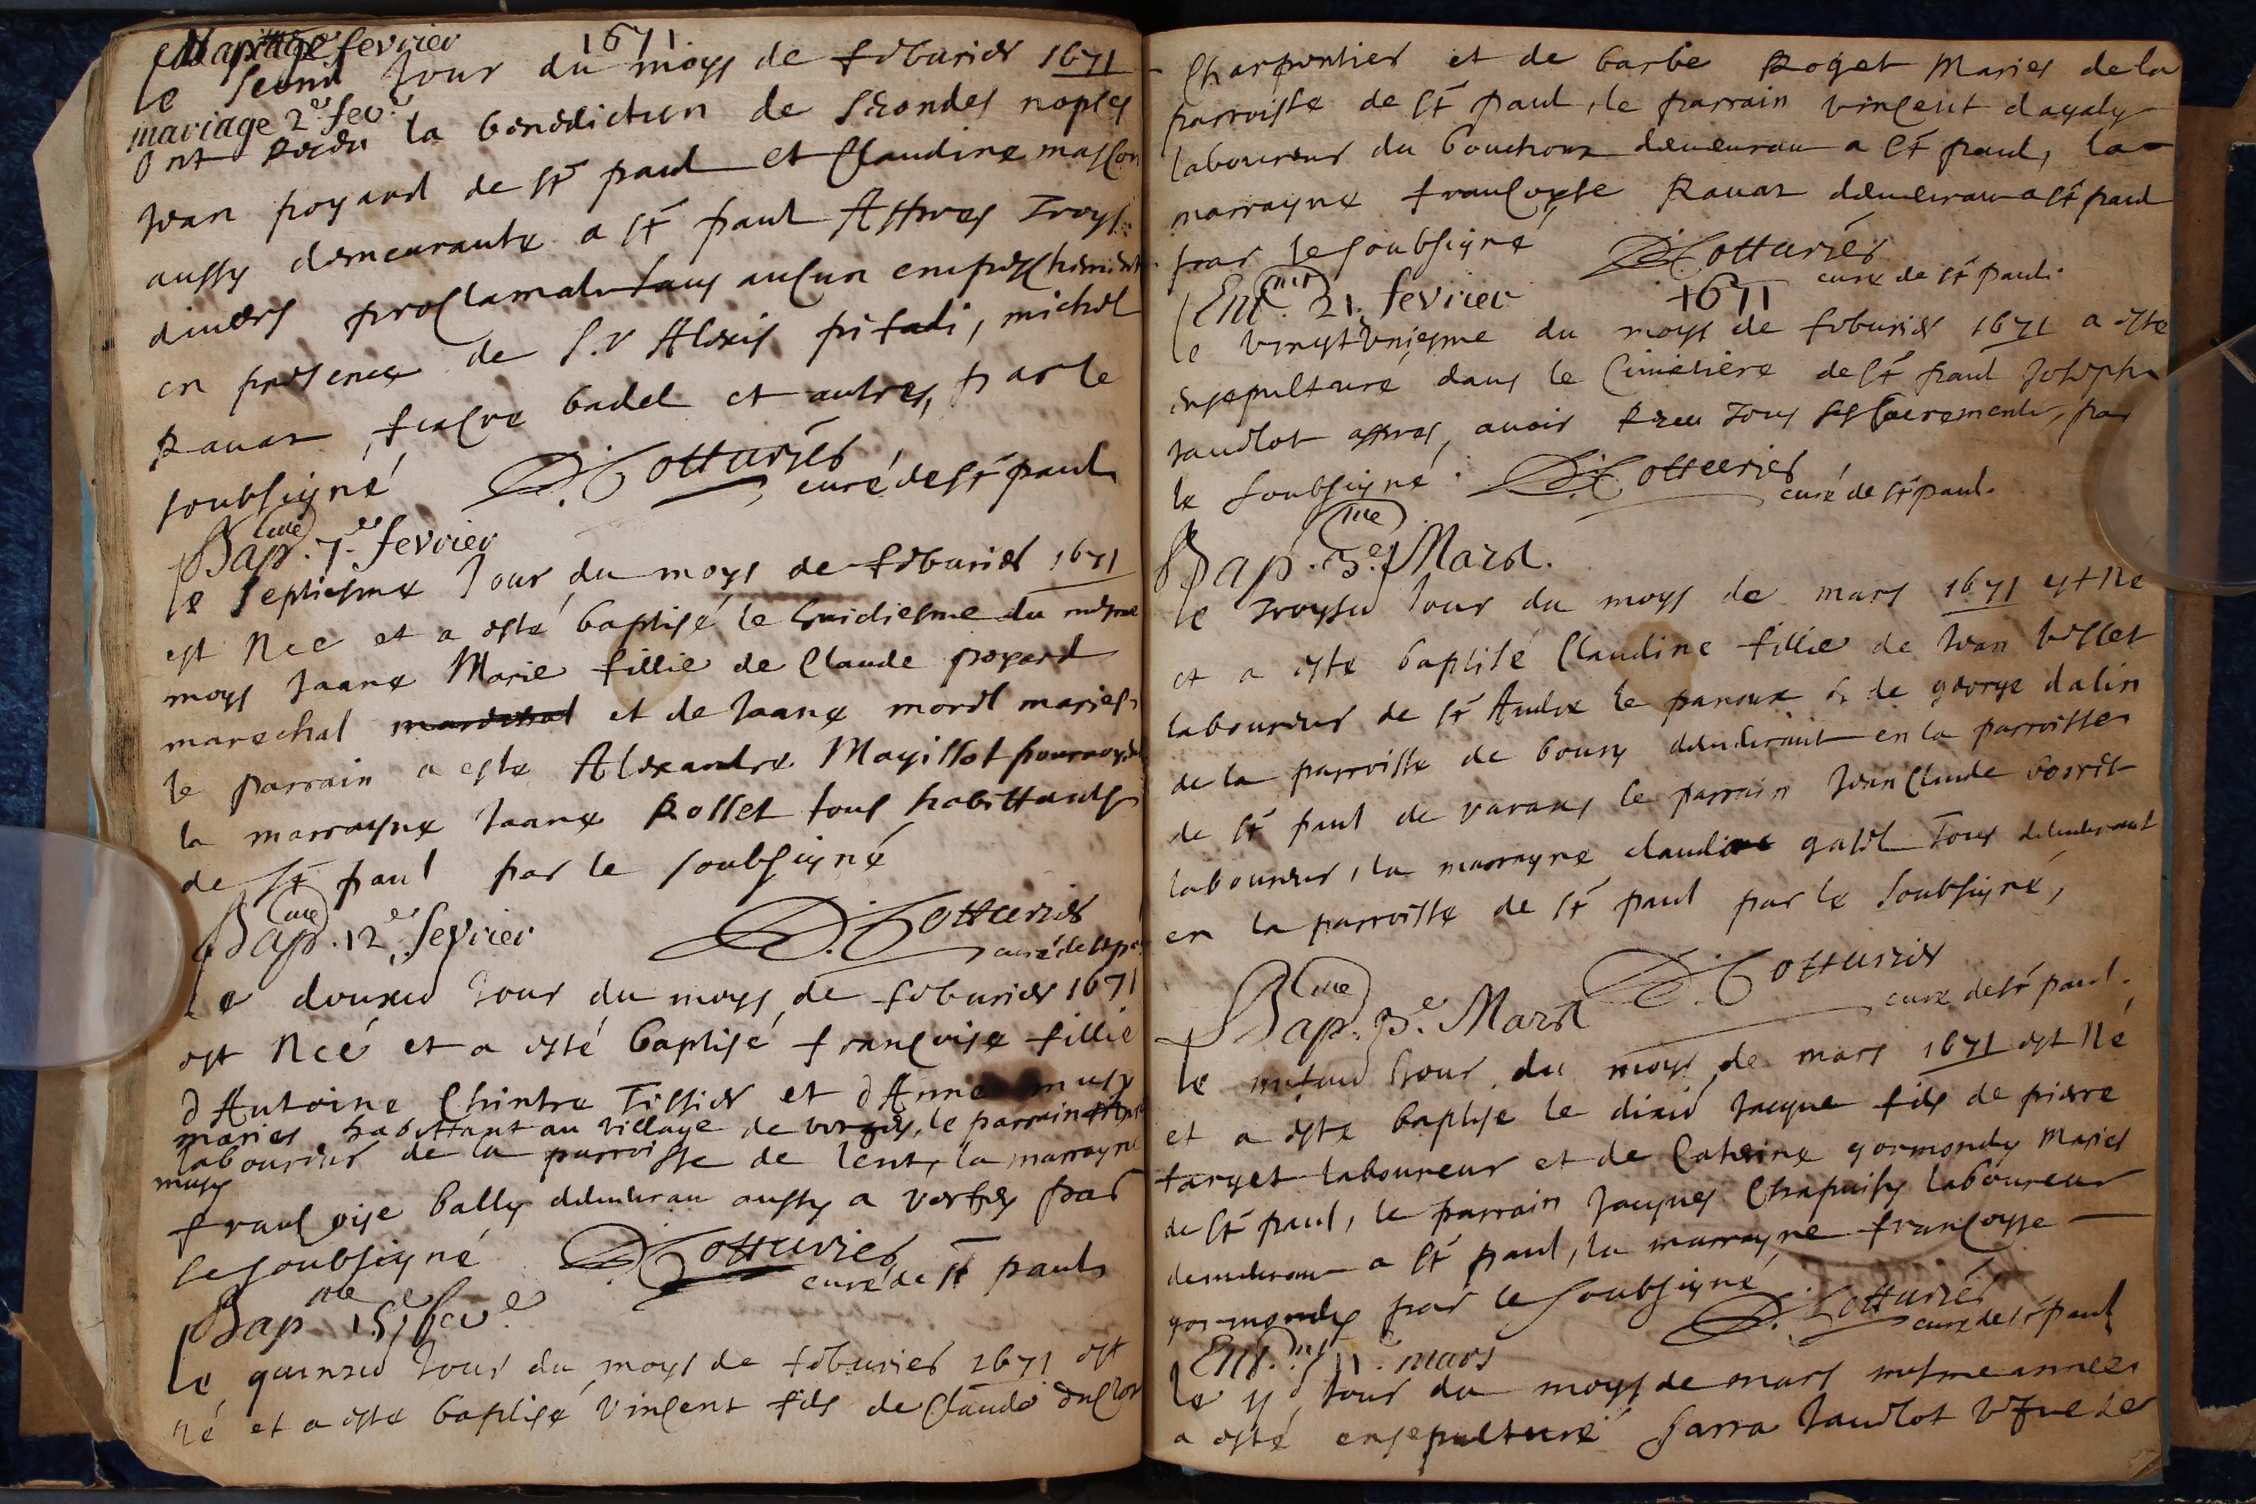 Mariage fevrier 1671
le second Jour du moys de febvrier 1671
mariage 2e fev.
ont la benediction de secondes nopses
Jean poyard de St paul et Claudine masson
aussy demeurante a St paul Appres Troys
divers proclamat sans aucun empeschement
en presence de S.r Alexis , michel
Ravat, fiacre badel et autres, par le
soubsigné D. Cotturier curé de St paul
Bap.me 7.e fevrier
le septiesme Jour du moys de febvrier 1671
est Nee et a esté baptisé le huictiesme du mesme
moys Jeane Marie fillie de Claude poyard
marechal et de Jeane morel mariés
le parrain a este Alexandre Magillot
la marrayne Jeane Rosset tous habittants
de St paul par le soubsigné
D. Cotturier curé de St p
Bap.me 12.e fevrier
Le douzie Jour du moys de febvrier 1671
est Neé et a esté baptisé francoise fillie
d Antoine Chintre Tissier et d Anne musy
mariés habittant au village de , le parrain
laboureur de la parroisse de lent, la marrayne
musy
francoise bally demeurau aussy a par
le soubsigné D. Cotturier
curé de St paul
Bap.me 15.e fev.e
le quinzie Jour du moys de febvrier 1671 est
né et a este baptisé Vincent fils de Claude
Charpentier et de barbe Roget Mariés de la
parroisse de St paul, le parrain vincent dagaly
laboureur du bouchoux demeurau a St paul, la
marrayne francoyse Ravat demeurau a St paul
par le soubsigné D. Cotturier
curé de St paul.
Ent.mt 21. fevrier 1671
le vingt Uniesme du moys de febvrier 1671 a este
ensepulturé dans le Cimetiere de St paul Joseph
Jaudlot appres avoir Receu Tous ses sacrements, par
le soubsigné. D. Cotturier
curé de St paul.
Bap.me 3.e Mars.
le Troysie Jour du moys de mars 1671 est Né
et a este baptisé Claudine fillie de Jean
laboureur de St Andre le panoux & de george dalin
de la parroisse de bourg demeurant en la parroisse
de St paul de varax, le parrain Jean Claude
laboureur, la marrayne claudine Tous demeurant
en la parroisse de St paul par le soubsigné,
D. Cotturier
curé de St paul.
Bap.me 9.e Mars
le Jour du moys de mars 1671 est Né
et a este baptise le dixie Jacque fils de pierre
target laboureur et de Caterine gormondy Mariés
de St paul, le parrain Jacques Chapuisy laboureur
demeurau a St paul, la marrayne francoyse
gormondy par le soubsigné D. Cotturier
curé de St paul
Ent.mt 11. mars
le 11 Jour du moys de mars mesme annee
a esté ensepulturé Sarra Jaudlot vefve de